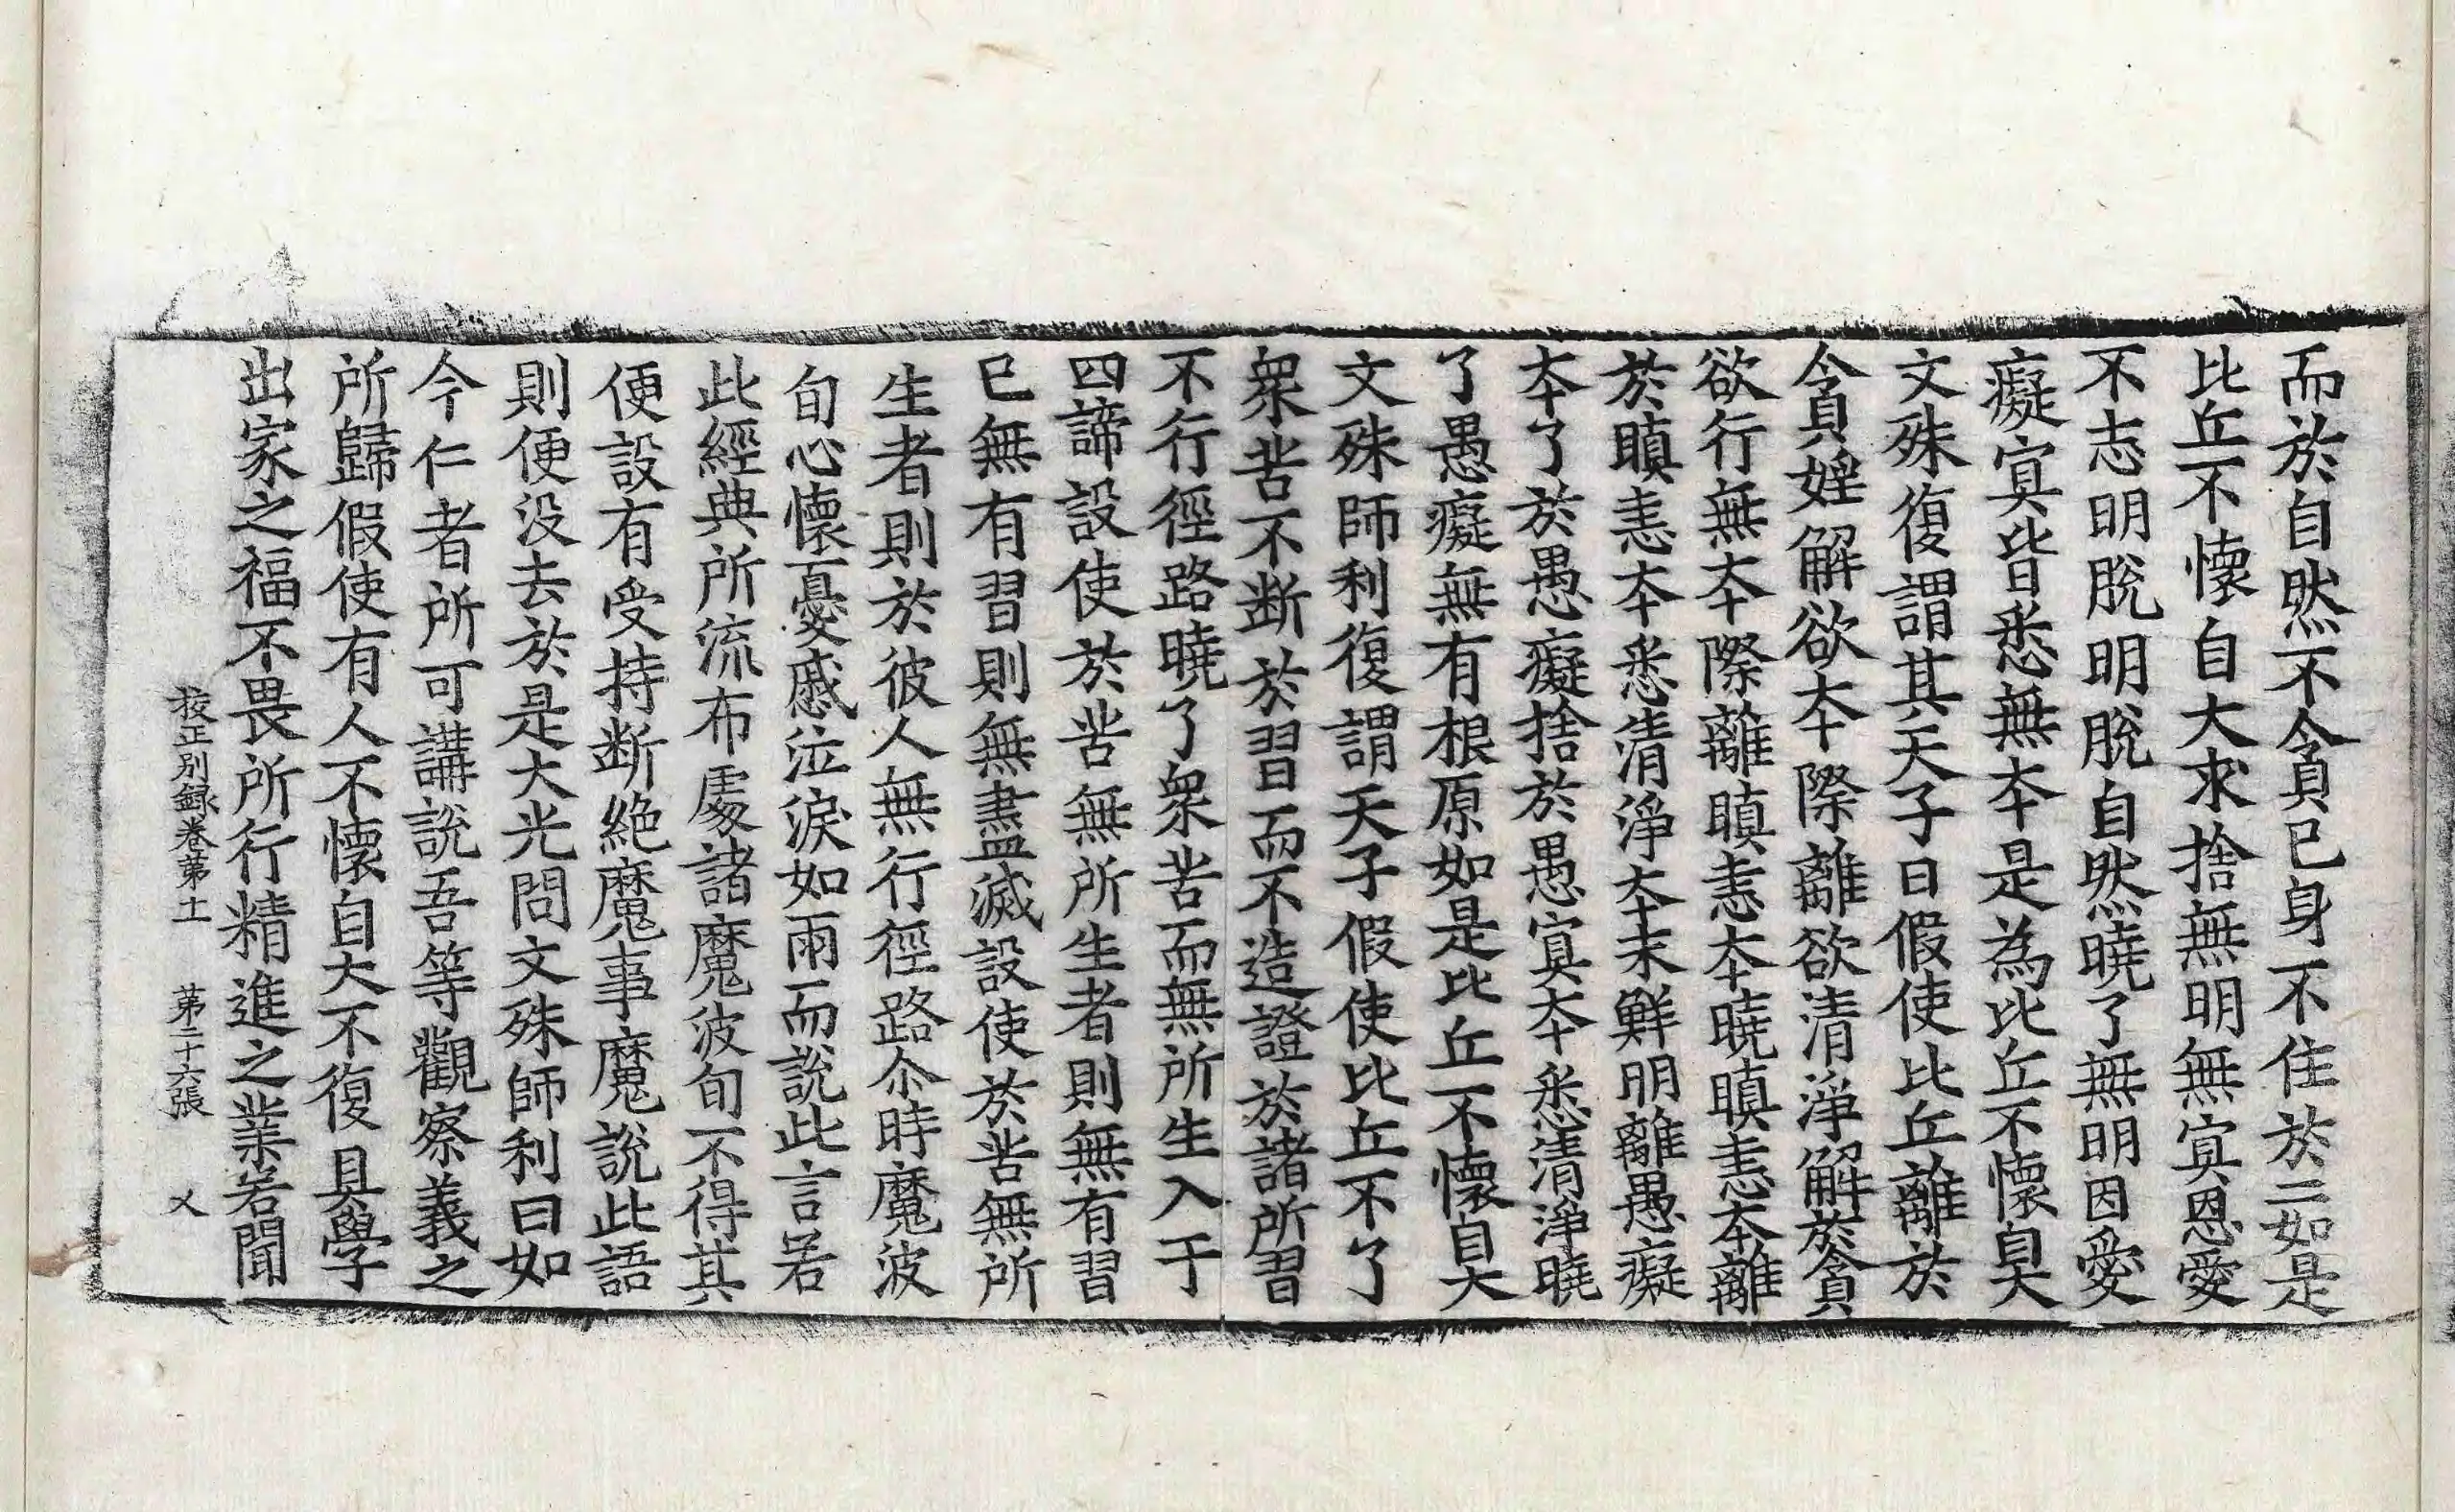 而於自然不貪已身不住於二如是
比丘不懷自大求捨無明無冥恩愛
不志明脫明脫自然曉了無明因愛
癡冥皆悉無本是為比丘不懷自大
文殊復謂其天子曰假使比丘離於
貪婬解欲本際離欲清淨解於貪
欲行無本際離瞋恚本曉瞋恚本離
於瞋恚本悉清淨本末鮮明離愚癡
本了於愚癡捨於愚冥本悉清淨曉
了愚癡無有根原如是比丘不懷自大
文殊師利復謂天子假使比丘不了
衆苦不断於習而不造證於諸所習
不行徑路曉了衆苦而無所生入于
四諦設使於苦無所生者則無有習
已無有習則無盡滅設使於苦無所
生者則於彼人無行徑路尒時魔波
旬心懷憂慼泣淚如雨而說此言若
此經典所流布處諸魔波旬不得其
便設有受持断絶魔事魔說此語
則便没去於是大光問文殊師利曰如
今仁者所可講說吾等觀察義之
所歸假使有人不懷自大不復具學
出家之福不畏所行精進之業若聞
校正別録卷第十 第二十六張 㐅